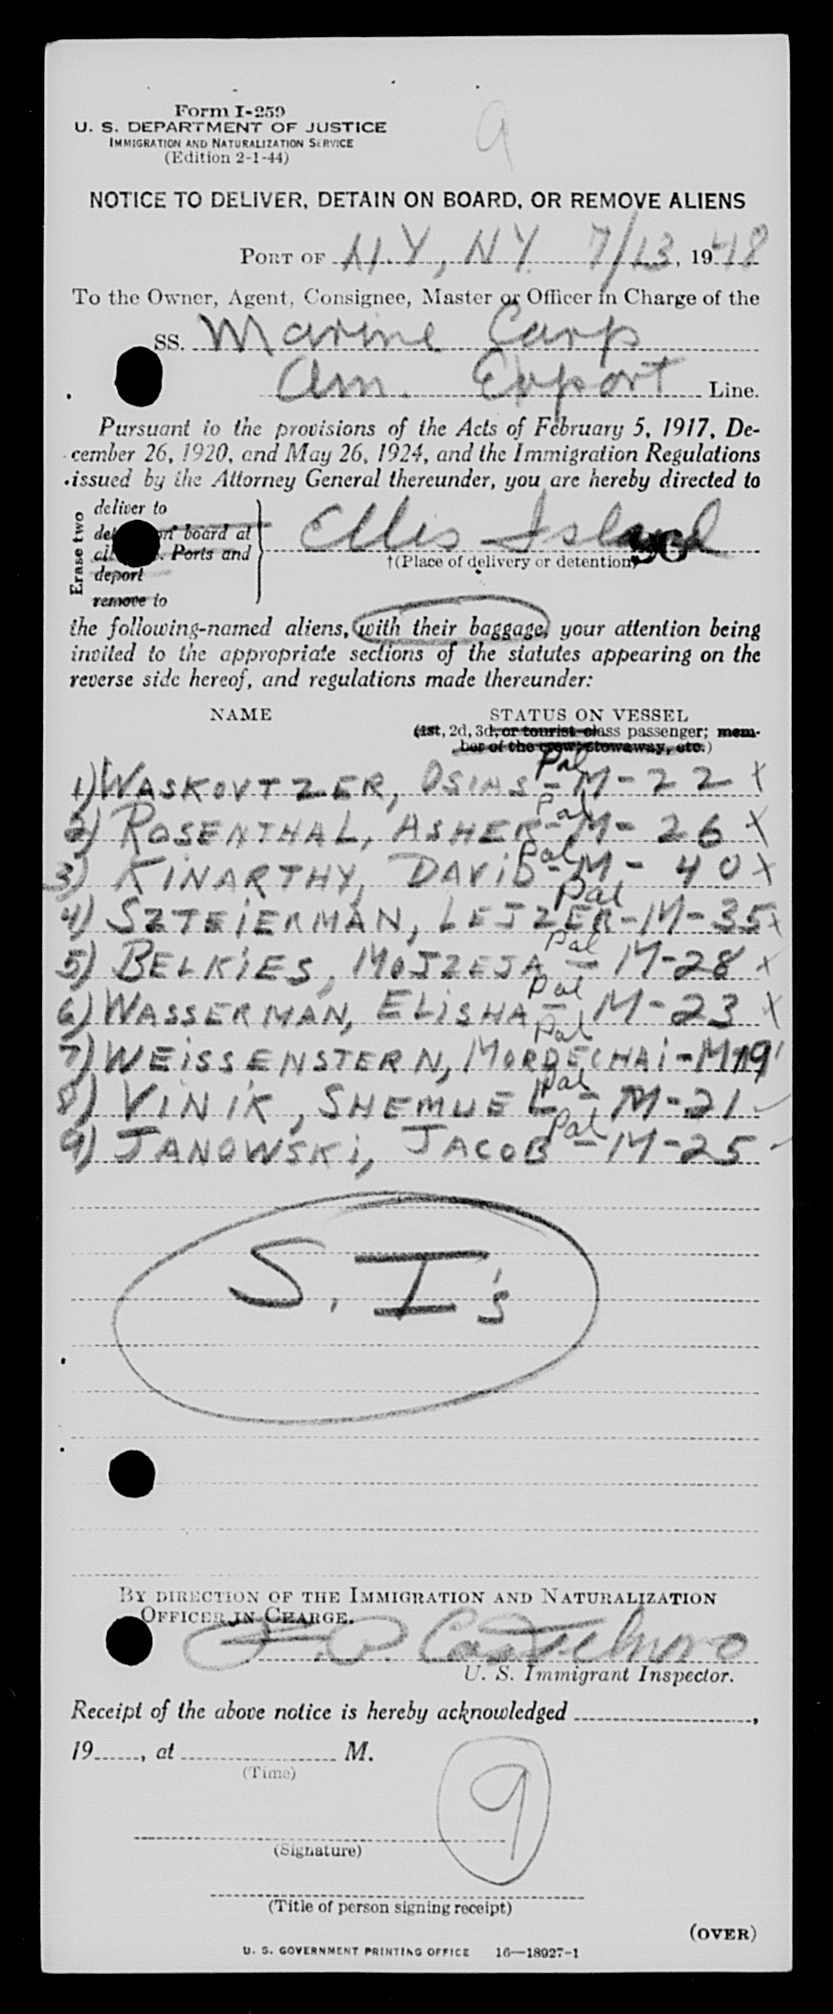 9
Form I-259
U. S. DEPARTMENT OF JUSTICE
IMMIGRATION AND NATURALIZATION SERVICE
(Edition 2-1-44)
NOTICE TO DELIVER, DETAIN ON BOARD, OR REMOVE ALIENS
PORT OF N.Y, NY. 7/13, 1948
To the Owner, Agent, Consignee, Master or Officer in Charge of the
SS. Marine Carp
Am. Export Line.
Pursuant to the provisions of the Acts of February 5, 1917, De-
cember 26, 1920, and May 26, 1924, and the Immigration Regulations
issued by the Attorney General thereunder, you are hereby directed to
Erase two
deliver to
on board at
Ports and
deport
remove to
Ellis Island
†(Place of delivery or detention)
the following-named aliens, with their baggage, your attention being
invited to the appropriate sections of the statutes appearing on the
reverse side hereof, and regulations made thereunder:
NAME STATUS ON VESSEL
(1st, 2d, 3d, or tourist class passenger; mem-
ber of the crew, stowaway, etc.)
1) WASKOVTZER, OSIAS - Pal M - 22 x
2) ROSENTHAL, ASHER - Pal M - 26 x
3) KINARTHY, DAVID - Pal M - 40 x
4) SZTEIERMAN, LEJZER - Pal M - 35 x
5) BELKIES, MOJZESA - Pal M - 28 x
6) WASSERMAN, ELISHA - Pal M - 23 x
7) WEISSENSTERN, MORDECHAI - Pal M 19
8) VINIK, SHEMUEL - Pal M - 21 ✓
9) JANOWSKI, JACOB - Pal M - 25 ✓
S. I's
BY DIRECTION OF THE IMMIGRATION AND NATURALIZATION
OFFICER IN CHARGE.
U. S. Immigrant Inspector.
Receipt of the above notice is hereby acknowledged ,
19 , at M.
(Time)
9
(Signature)
(Title of person signing receipt)
(OVER)
U. S. GOVERNMENT PRINTING OFFICE 16—18927-1